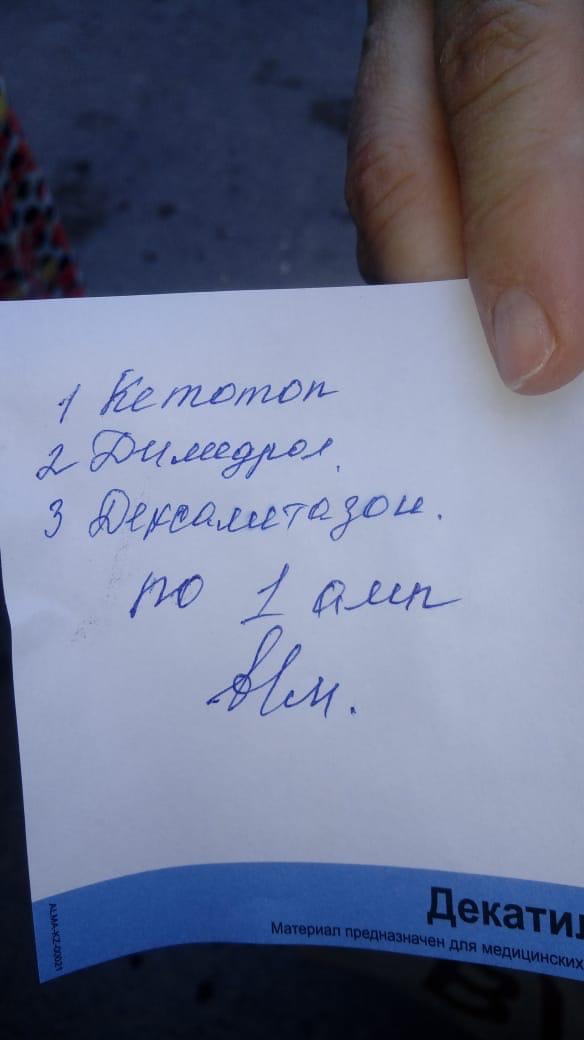 1 Кетотоп
2 Димедрол.
3 Дексаметазон.
по 1 амп
в/м.
Декатил
Материал предназначен для медицинских
ALMA-KZ-00021